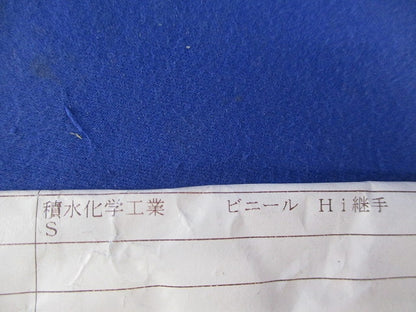 積水化学工業　　ビニール　Ｈｉ継手
Ｓ